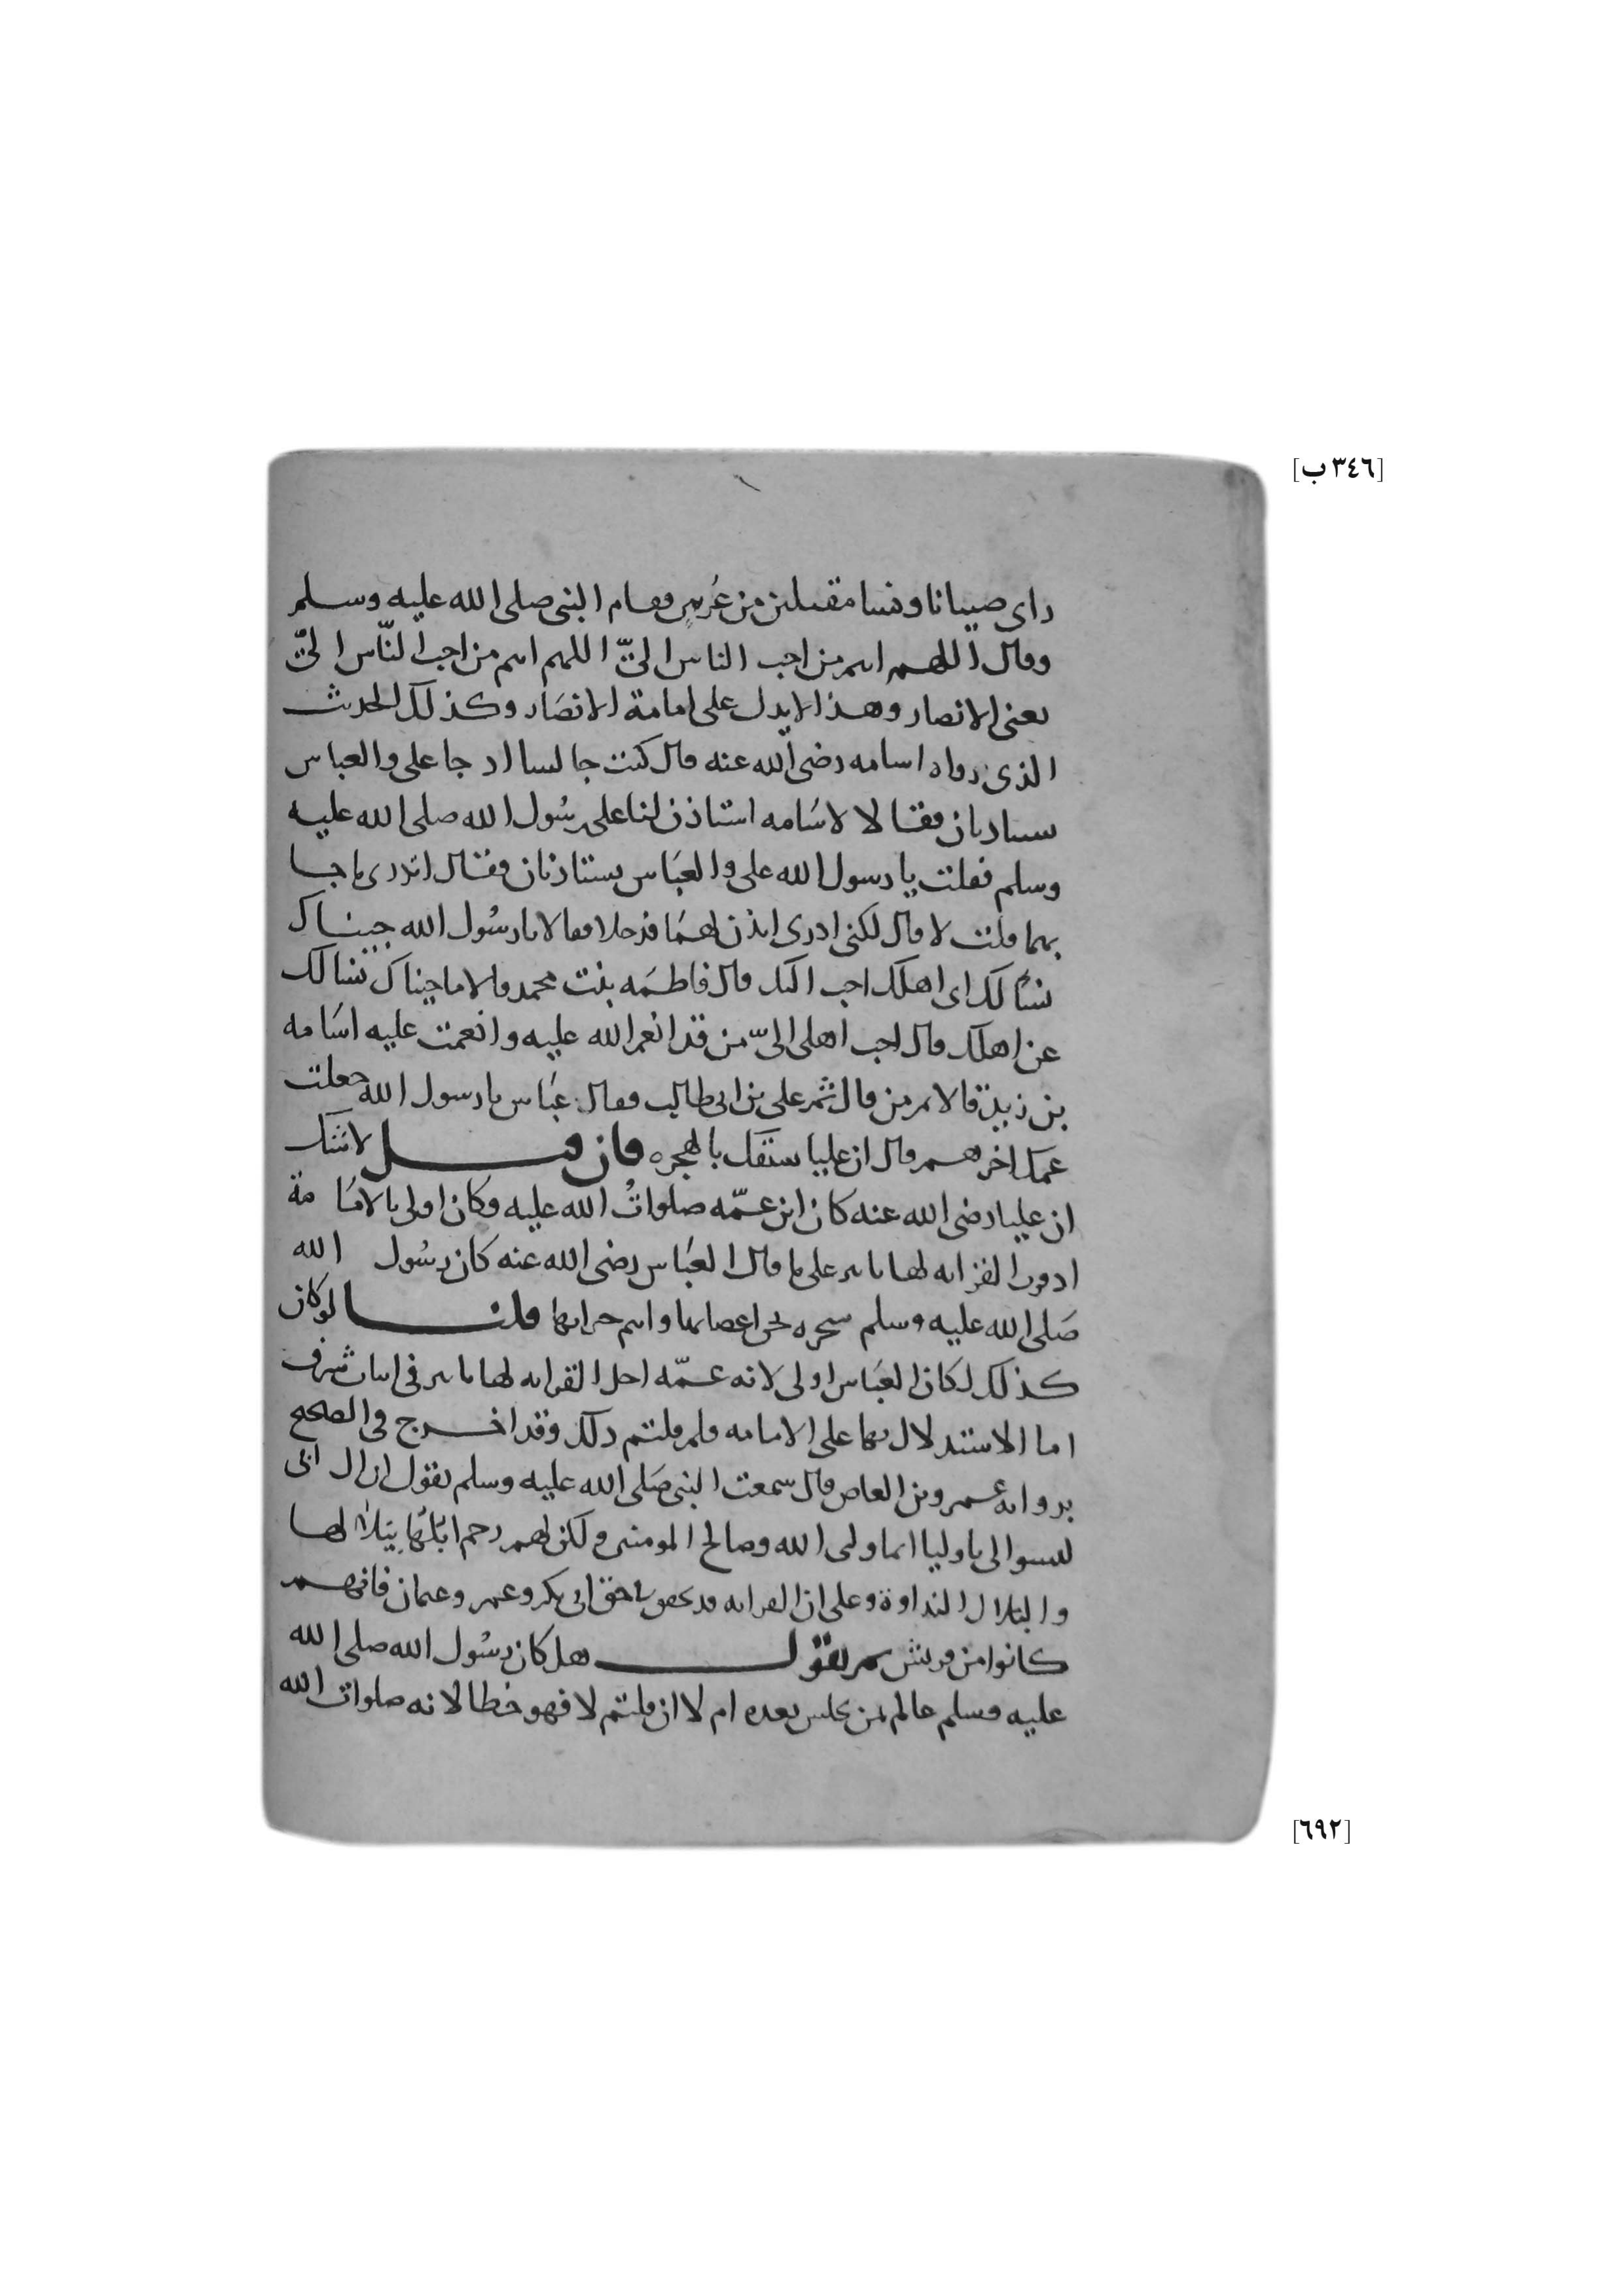 [٣٤٦ ب]
راى صبيانا ونسا مقبلين من عرس فقام النبى صلى الله عليه وسلم
وقال اللهم انتم من احب الناس الىّ اللهم انتم من احب النّاس الىّ
يعنى الانصار وهذا لا يدل على امامة الانصَار وكذلك الحديث
الذى رواه اسامه رضى الله عنه قال كنت جالسا اذ جا على والعباس
يستاذنان فقالا لاسَامه استاذن لنا على رسُول الله صلى الله عليه
وسلم فقلت يا رسول الله على والعبَاس يستاذنان فقال اتدرى ما جا
بهما قلت لا قال لكنى ادرى ايذن لهمَا فدخلا فقالا يا رسُول الله جيناك
نسَالك اى اهلك احب اليك قال فاطمَه بنت محمد قالا ما جيناك نسالك
عن اهلك قال احب اهلى الىّ من قد انعم الله عليه وانعمت عليه اسَامه
بن زيد قالا ثم من قال ثم على بن ابى طالب فقال عبَاس يا رسول الله جعلت
عمك اخرهم قال ان عليا سبقك بالهجره فان قيل لا شك
ان عليا رضى الله عنه كان ابن عمّه صلواتُ الله عليه وكان اولى بالامَامة
اذ قرب القرابه لها تاثير على ما قال العبَاس رضى الله عنه كان رسُول الله
صَلى الله عليه وسلم شجره نحن اغصانها وانتم جيرانها قلنا لو كان
كذلك لكان العبَاس اولى لانه عمّه اجل القرابه لها تاثير فى اثبات شرف
اما الاستدلال بها على الامامه فلم قلتم ذلك وقد اخرج فى الصحيح
بروايه عمرو بن العاص قال سمعت النبى صَلى الله عليه وسلم يقول ان ال ابى
ليسوا لى باوليا انما وليى الله وصالح المومنين ولكن لهم رحم ابُلّهَا بِبَلالها
والبلال النداوة وعلى ان القرابه قد تحقق فى حق ابى بكر وعمر وعثمان فانهم
كانوا من قريش ثم نقول هل كان رسُول الله صلى الله
عليه وسلم عالم بمن يجلس بعده ام لا ان قلتم لا فهو خطا لانه صلوات الله
[٦٩٢]